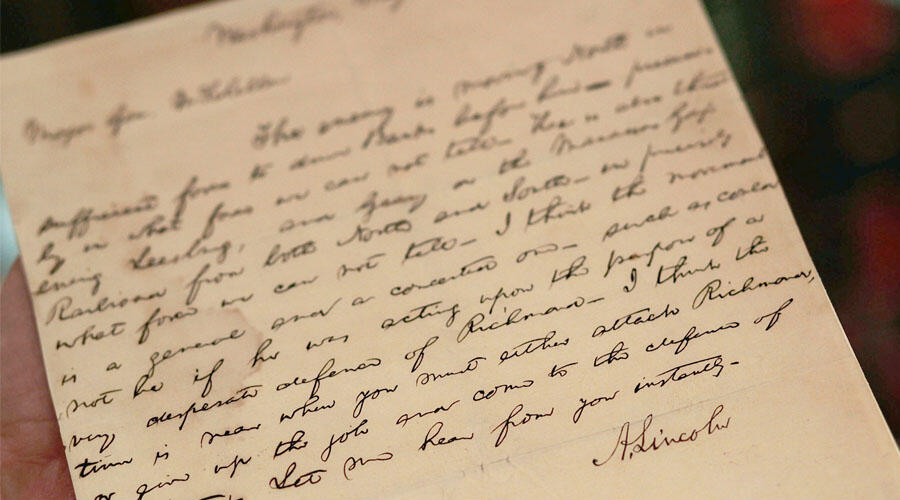 Washington, May
Major Gen. McClellan
The enemy is moving North in
sufficient force to drive Banks before him— precise-
ly in what force we can not tell— He is also threat-
ening Leesburg, and Geary on the Manassas Gap
Railroad from both North and South— in precisely
what force we can not tell— I think the movement
is a general and a concerted one— such as could
not be if he was acting upon the purpose of a
very desperate defence of Richmond— I think the
time is near when you must either attack Richmond,
or give up the job and come to the defence of
Let me hear from you instantly—
A. Lincoln